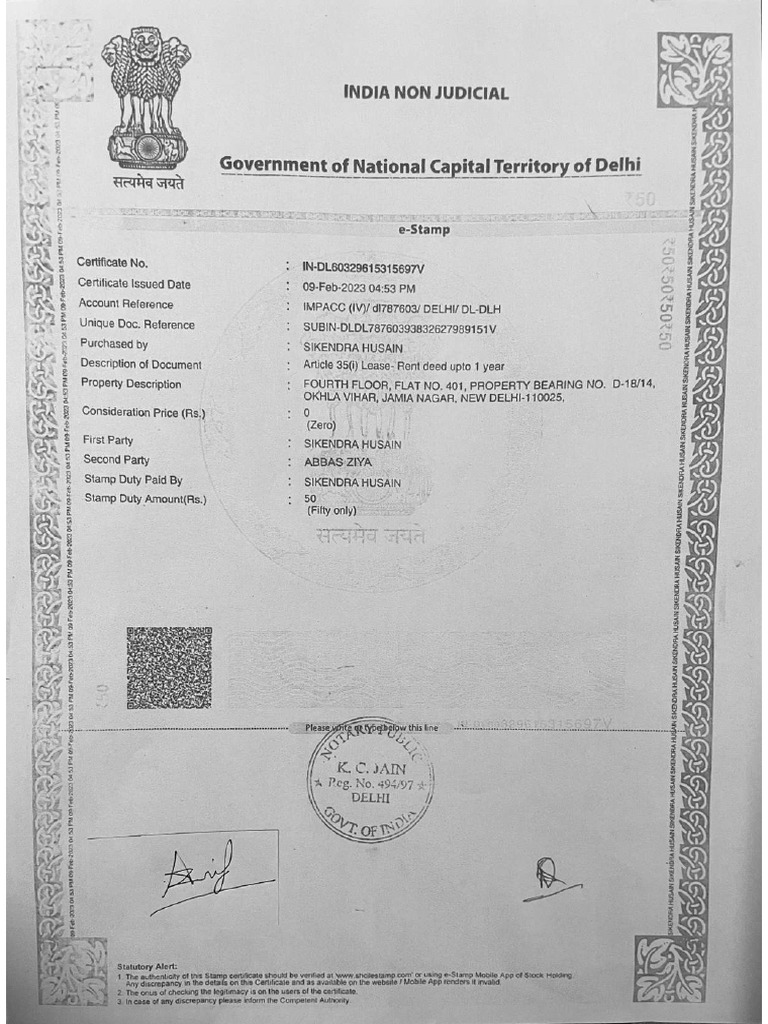 INDIA NON JUDICIAL
सत्यमेव जयते
Government of National Capital Territory of Delhi
₹50
e-Stamp
Certificate No. : IN-DL60329615315697V
Certificate Issued Date : 09-Feb-2023 04:53 PM
Account Reference : IMPACC (IV)/ dl787603/ DELHI/ DL-DLH
Unique Doc. Reference : SUBIN-DLDL78760393832627989151V
Purchased by : SIKENDRA HUSAIN
Description of Document : Article 35(i) Lease- Rent deed upto 1 year
Property Description : FOURTH FLOOR, FLAT NO. 401, PROPERTY BEARING NO. D-18/14,
OKHLA VIHAR, JAMIA NAGAR, NEW DELHI-110025,
Consideration Price (Rs.) : 0
(Zero)
First Party : SIKENDRA HUSAIN
Second Party : ABBAS ZIYA
Stamp Duty Paid By : SIKENDRA HUSAIN
Stamp Duty Amount(Rs.) : 50
(Fifty only)
सत्यमेव जयते
Please write or type below this line
NOTARY PUBLIC
K. C. JAIN
Reg. No. 494/97
DELHI
GOVT. OF INDIA
Statutory Alert:
1. The authenticity of this Stamp certificate should be verified at 'www.shcilestamp.com' or using e-Stamp Mobile App of Stock Holding.
Any discrepancy in the details on this Certificate and as available on the website / Mobile App renders it invalid.
2. The onus of checking the legitimacy is on the users of the certificate.
3. In case of any discrepancy please inform the Competent Authority.